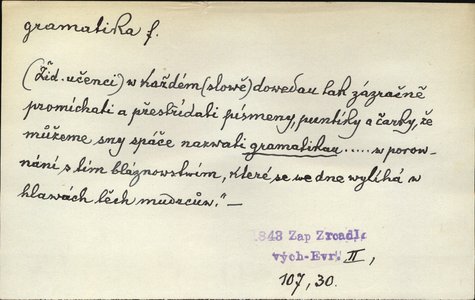 gramatika f.
(Žid. učenci) w každém (slowě) dowedau tak zázračně
promíchati a přestřídati písmeny, puntíky a čárky, že
můžeme sny spáče nazwati gramatikau ..... w porow-
nání s tím bláznowstwím, které se we dne wylíhá w
hlawách těch mudrcůw." —
1843 Zap Zrcadlo
vých-Evr. II,
107, 30.